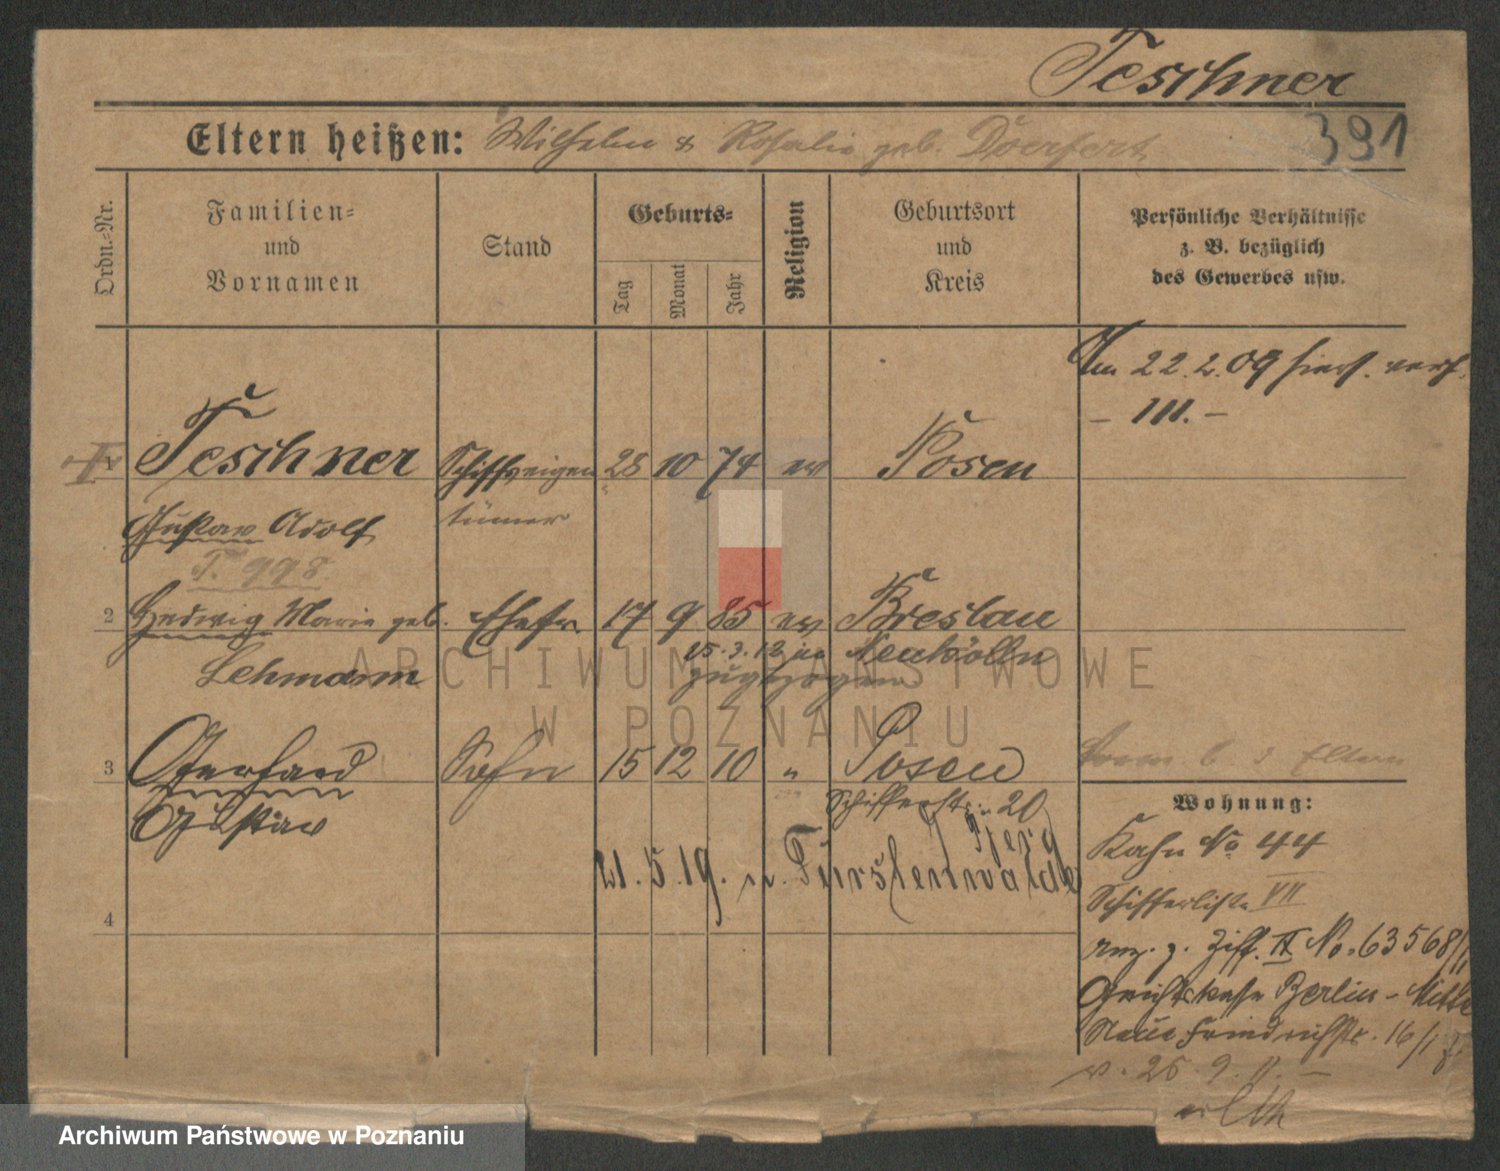 Teschner
Eltern heißen: Wilhelm & Rosalie geb. Doerfert
391
Ordn.-Nr.
Familien-
und
Vornamen
Stand
Geburts-
Tag
Monat
Jahr
Religion
Geburtsort
und
Kreis
Persönliche Verhältnisse
z. B. bezüglich
des Gewerbes usw.
Am 22.2.09 hier verh.
– III. –
1 Teschner Schiffseigen 28 10 74 ev Posen
tümer
Gustav Adolf
T. 998.
2 Hedwig Marie geb. Ehefr. 17 9 85 ev Breslau
Lehmann
15.3.12 Neukölln
zugezogen
3 Gerhard Sohn 15 12 10 " Posen
Gustav
Schifferstr. 20
b. d. Eltern
21.5.19. n. Fürstenwalde
4
Wohnung:
Kahn No 44
Schifferliste VII
Ziff. II No. 63568/11
Gerichtskasse Berlin-Mitte
Neue Friedrichstr. 16/17
v. 25.9.11. –
ARCHIWUM PAŃSTWOWE
W POZNANIU
Archiwum Państwowe w Poznaniu